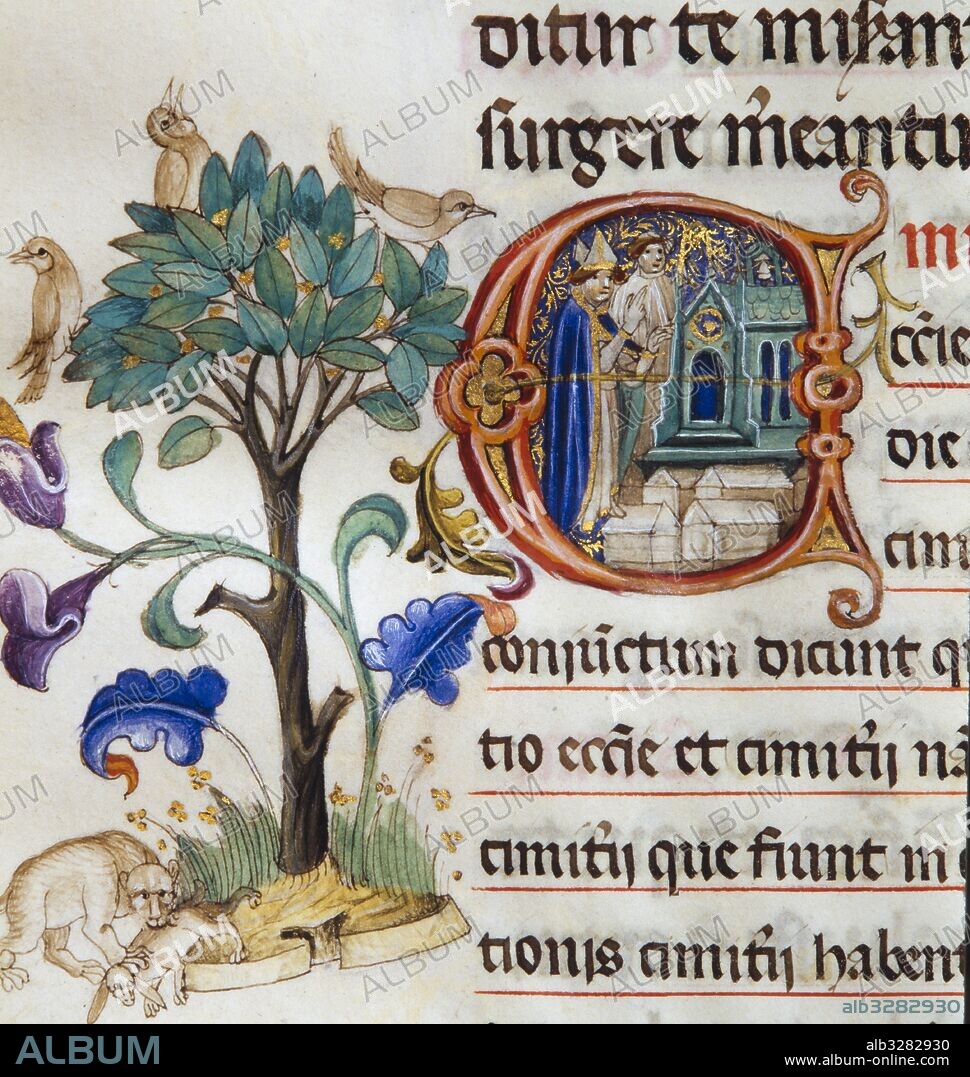 ditur te misan
surgere m̄eantu
m
ccīe
die
cim
coniūctum dicunt q
tio eccīe et cimit̄ij nā
cimit̄ij que fiunt in
tionis cimit̄ij habent
alb3282930
ALBUM
alb3282930
www.album-online.com